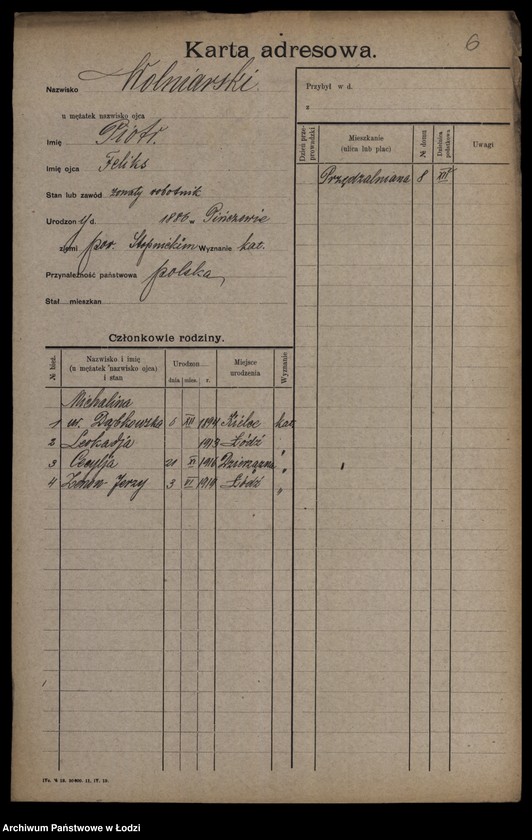 Karta adresowa.
6
Nazwisko Wolniarski
u mężatek nazwisko ojca
Imię Piotr.
Imię ojca Feliks
Stan lub zawód żonaty robotnik
Urodzon y d. 1886 w Pińczowie
ziemi pow. Stopnickim Wyznanie kat.
Przynależność państwowa polska
Stał. mieszkan
Przybył w d.
z
Dzień przeprowadzki
Mieszkanie
(ulica lub plac)
№ domu
Dzielnica podatkowa
Uwagi
Przędzalniana 8 XIV
Członkowie rodziny.
№ bież.
Nazwisko i imię
(u mężatek nazwisko ojca)
i stan
Urodzon
dnia mies. r.
Miejsce
urodzenia
Wyznanie
Michalina
1 ur. Dąbkowska 6 XII 1894 Kielce kat
2 Leokadja 1913 Łódź "
3 Cecylja 21 XI 1916 "
4 Zenon Jerzy 3 VI 1919 Łódź "
Archiwum Państwowe w Łodzi